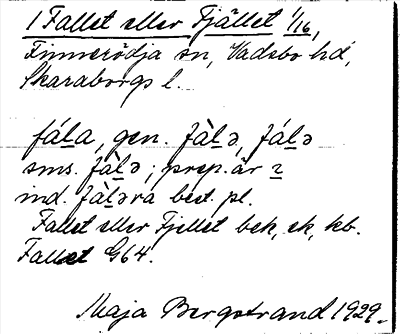 1 Fallet eller Fjället 1/16,
Finnerödja sn, Vadsbo hd,
Skaraborgs l.
fá́la, gen. fàlə, fálə
sms. fàlə; prep. är 2
ind. fàləra best. pl.
Fallet eller Fjellet bek, ek, kb.
Fallet G64.
Maja Bergstrand 1929.